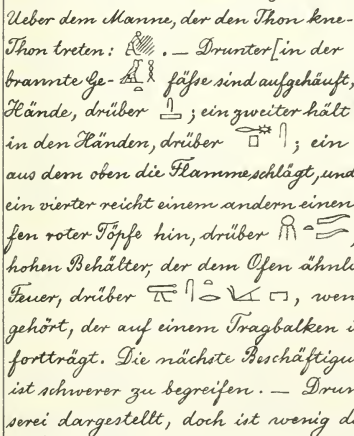 Ueber dem Manne, der den Thon kne-
Thon treten: . — Drunter [in der
brannte Ge- fäſse sind aufgehäuft,
Hände, drüber ; ein zweiter hält
in den Händen, drüber ; ein
aus dem oben die Flamme schlägt, und
ein vierter reicht einem andern einen
fen roter Töpfe hin, drüber
hohen Behälter, der dem Ofen ähnl
Feuer, drüber , wen
gehört, der auf einem Tragbalken i
fortträgt. Die nächste Beschäftigu
ist schwerer zu begreifen. — Drun
serei dargestellt, doch ist wenig d